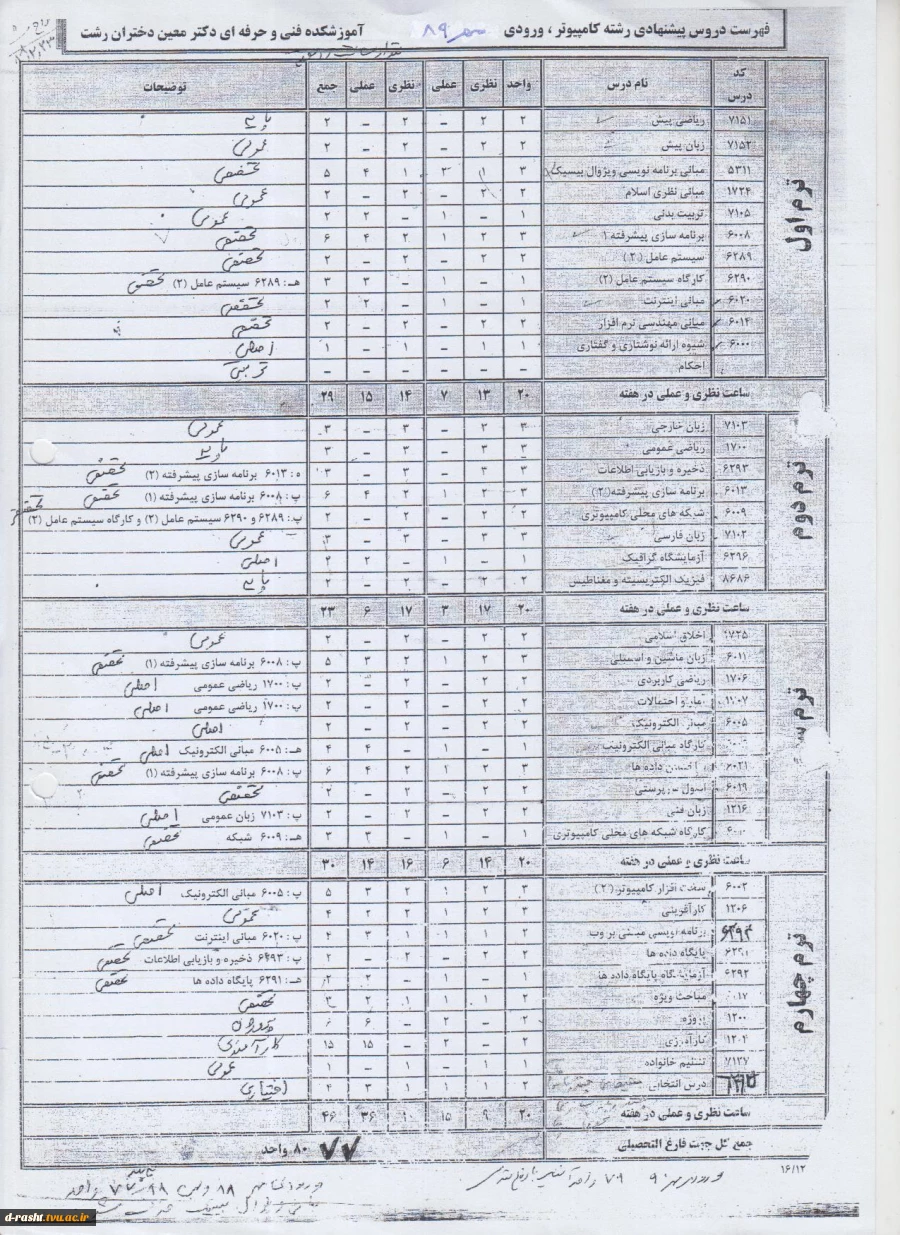 فهرست دروس پیشنهادی رشته کامپیوتر ، ورودی مهر ۸۹ آموزشکده فنی و حرفه ای دکتر معین دختران رشت
کد درس نام درس واحد نظری عملی نظری عملی جمع توضیحات
ترم اول
۷۱۵۱ ریاضی پیش ۲ ۲ - ۲ - ۲ پایه
۷۱۵۲ زبان پیش ۲ ۲ - ۲ - ۲ عمومی
۵۳۱۱ مبانی برنامه نویسی ویژوال بیسیک ۳ ۱ ۴ ۵ تخصصی
۱۷۲۴ مبانی نظری اسلام ۲ ۲ - ۲ - ۲ عمومی
۷۱۰۵ تربیت بدنی ۱ - ۱ - ۲ ۲ عمومی
۶۰۰۸ برنامه سازی پیشرفته ۱ ۳ ۲ ۱ ۲ ۴ ۶ تخصصی
۶۲۸۹ سیستم عامل (۲) ۲ ۲ - ۲ - ۲ تخصصی
۶۲۹۰ کارگاه سیستم عامل (۲) ۱ - ۱ - ۳ ۳ هـ: ۶۲۸۹ سیستم عامل (۲) تخصصی
۶۰۲۰ مبانی اینترنت ۱ - ۱ - ۲ ۲ تخصصی
۶۰۱۴ مبانی مهندسی نرم افزار ۲ ۲ - ۲ - ۲ تخصصی
۶۰۰۰ شیوه ارائه نوشتاری و گفتاری ۱ ۱ - ۱ - ۱ اصلی
احکام - - - - - - تربیتی
ساعت نظری و عملی در هفته ۲۰ ۱۳ ۷ ۱۴ ۱۵ ۲۹
ترم دوم
۷۱۰۳ زبان خارجی ۳ ۳ - ۳ - ۳ عمومی
۱۷۰۰ ریاضی عمومی ۳ ۳ - ۳ - ۳ پایه
۶۲۹۳ ذخیره و بازیابی اطلاعات ۳ ۳ - ۳ - ۳ ه: ۶۰۱۳ برنامه سازی پیشرفته (۲) تخصصی
۶۰۱۳ برنامه سازی پیشرفته (۲) ۳ ۲ ۱ ۲ ۴ ۶ پ: ۶۰۰۸ برنامه سازی پیشرفته (۱) تخصصی
۶۰۰۹ شبکه های محلی کامپیوتری ۲ ۲ - ۲ - ۲ پ: ۶۲۸۹ و ۶۲۹۰ سیستم عامل (۲) و کارگاه سیستم عامل (۲) تخصصی
۷۱۰۲ زبان فارسی ۳ ۳ - ۳ - ۳ عمومی
۶۲۹۶ آزمایشگاه گرافیک ۱ - ۱ - ۲ ۲ اصلی
۸۶۸۶ فیزیک الکتریسیته و مغناطیس ۲ ۲ - ۲ - ۲ پایه
ساعت نظری و عملی در هفته ۲۰ ۱۷ ۳ ۱۷ ۶ ۲۳
ترم
۱۷۲۵ اخلاق اسلامی ۲ ۲ - ۲ - ۲ عمومی
۶۰۱۱ زبان ماشین و اسمبلی ۳ ۲ ۱ ۲ ۳ ۵ پ: ۶۰۰۸ برنامه سازی پیشرفته (۱) تخصصی
۱۷۰۶ ریاضی کاربردی ۲ ۲ - ۲ - ۲ پ: ۱۷۰۰ ریاضی عمومی اصلی
۱۷۰۷ آمار و احتمالات ۲ ۲ - ۲ - ۲ پ: ۱۷۰۰ ریاضی عمومی اصلی
۶۰۰۵ مبانی الکترونیک ۲ ۲ - ۲ - ۲ اصلی
کارگاه مبانی الکترونیک ۱ - ۱ - ۴ ۴ هـ: ۶۰۰۵ مبانی الکترونیک اصلی
۶۰۲۱ داده ها ۳ ۲ ۱ ۲ ۴ ۶ پ: ۶۰۰۸ برنامه سازی پیشرفته (۱) تخصصی
۶۰۱۹ اصول سرپرستی ۲ ۲ - ۲ - ۲ تخصصی
۱۲۱۶ زبان فنی ۲ ۲ - ۲ - ۲ پ: ۷۱۰۳ زبان عمومی اصلی
کارگاه شبکه های محلی کامپیوتری ۱ - ۱ - ۳ ۳ هـ: ۶۰۰۹ شبکه تخصصی
ساعت نظری و عملی در هفته ۲۰ ۱۴ ۶ ۱۶ ۱۴ ۳۰
ترم چهارم
۶۰۰۲ سخت افزار کامپیوتر (۲) ۳ ۲ ۱ ۲ ۳ ۵ پ: ۶۰۰۵ مبانی الکترونیک اصلی
۱۲۰۶ کارآفرینی ۳ ۲ ۱ ۲ ۲ ۴ عمومی
برنامه نویسی مبتنی بر وب ۲ ۱ ۱ ۱ ۳ ۴ پ: ۶۰۲۰ مبانی اینترنت تخصصی
۶۲۹۱ پایگاه داده ها ۲ ۲ - ۲ - ۲ پ: ۶۲۹۳ ذخیره و بازیابی اطلاعات تخصصی
۶۲۹۲ آزمایشگاه پایگاه داده ها ۱ - ۱ - ۲ ۲ هـ: ۶۲۹۱ پایگاه داده ها تخصصی
مباحث ویژه ۲ ۱ ۱ ۱ ۲ ۳ تخصصی
۱۲۰۰ پروژه ۲ - ۲ - ۶ ۶ پروژه
۱۲۰۴ کارآموزی ۲ - ۲ - ۱۵ ۱۵ کارآموزی
۷۱۲۷ تنظیم خانواده ۱ ۱ - ۱ - ۱ عمومی
درس انتخابی ۲ ۱ ۱ ۱ ۳ ۴ اختیاری
ساعت نظری و عملی در هفته ۲۰ ۹ ۱۵ ۱۰ ۳۶ ۴۶
جمع کل جهت فارغ التحصیلی ۷۷ ۸۰ واحد
۱۶/۱۲
ورودی مهر ۹۰ ۷۹ واحد
d-rasht.tvu.ac.ir